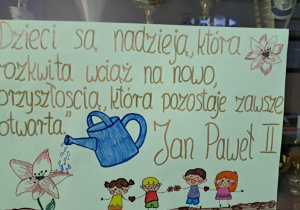 Dzieci są nadzieją, która
rozkwita wciąż na nowo,
przyszłością, która pozostaje zawsze
otwarta."
Jan Paweł II